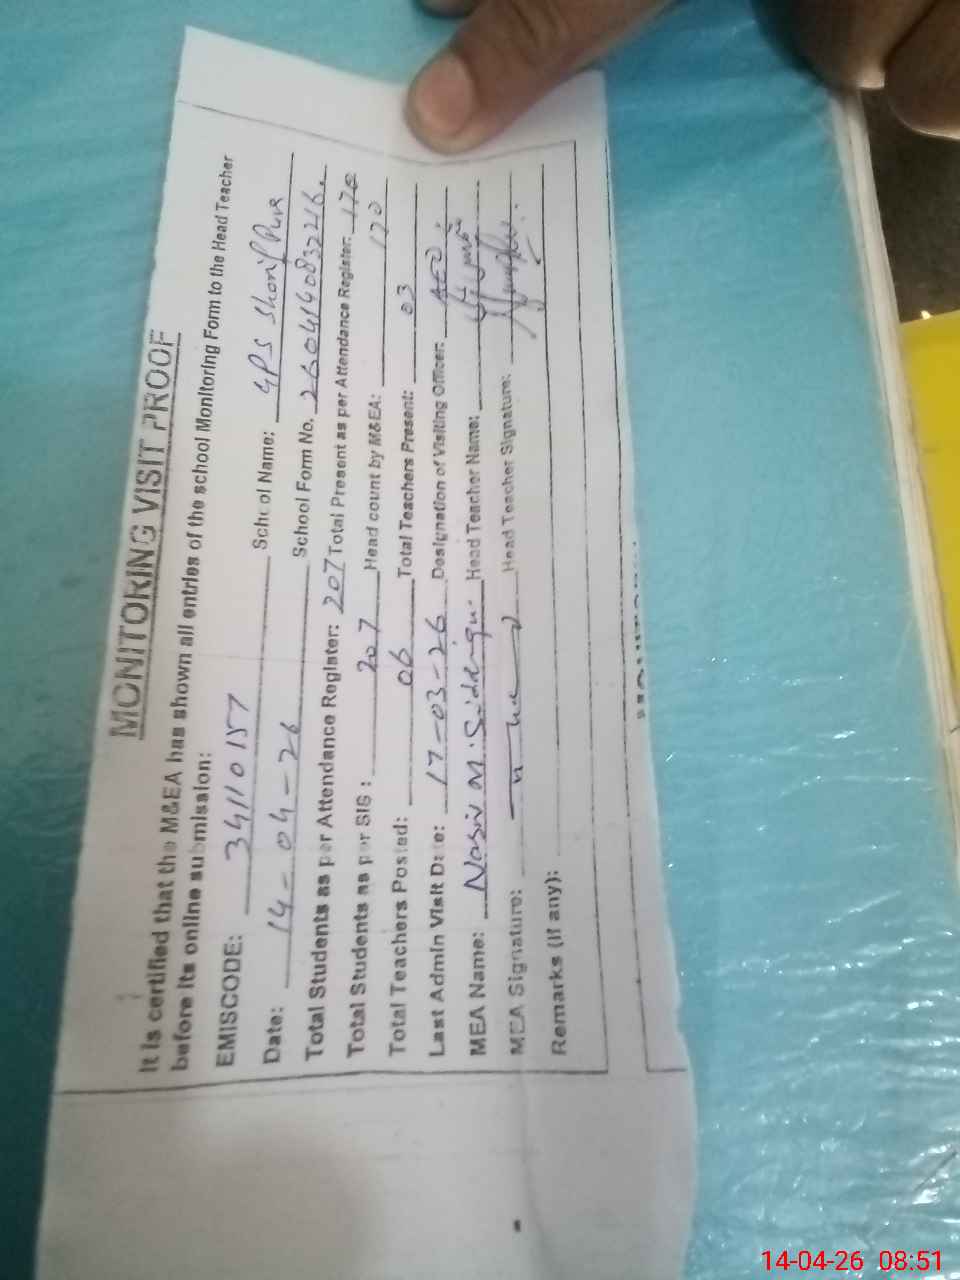 MONITORING VISIT PROOF
It is certified that the M&EA has shown all entries of the school Monitoring Form to the Head Teacher
before its online submission:
EMISCODE: 34110157 School Name: GPS Sharif Pura
Date: 14-04-26 School Form No. 2604140832216.
Total Students as per Attendance Register: 207 Total Present as per Attendance Register: 170
Total Students as per SIS: 207 Head count by M&EA: 170
Total Teachers Posted: 06 Total Teachers Present: 03
Last Admin Visit Date: 17-03-26 Designation of Visiting Officer: AEO
MEA Name: Nasir M. Siddiqui Head Teacher Name:
MEA Signature: Head Teacher Signature:
Remarks (if any):
14-04-26 08:51